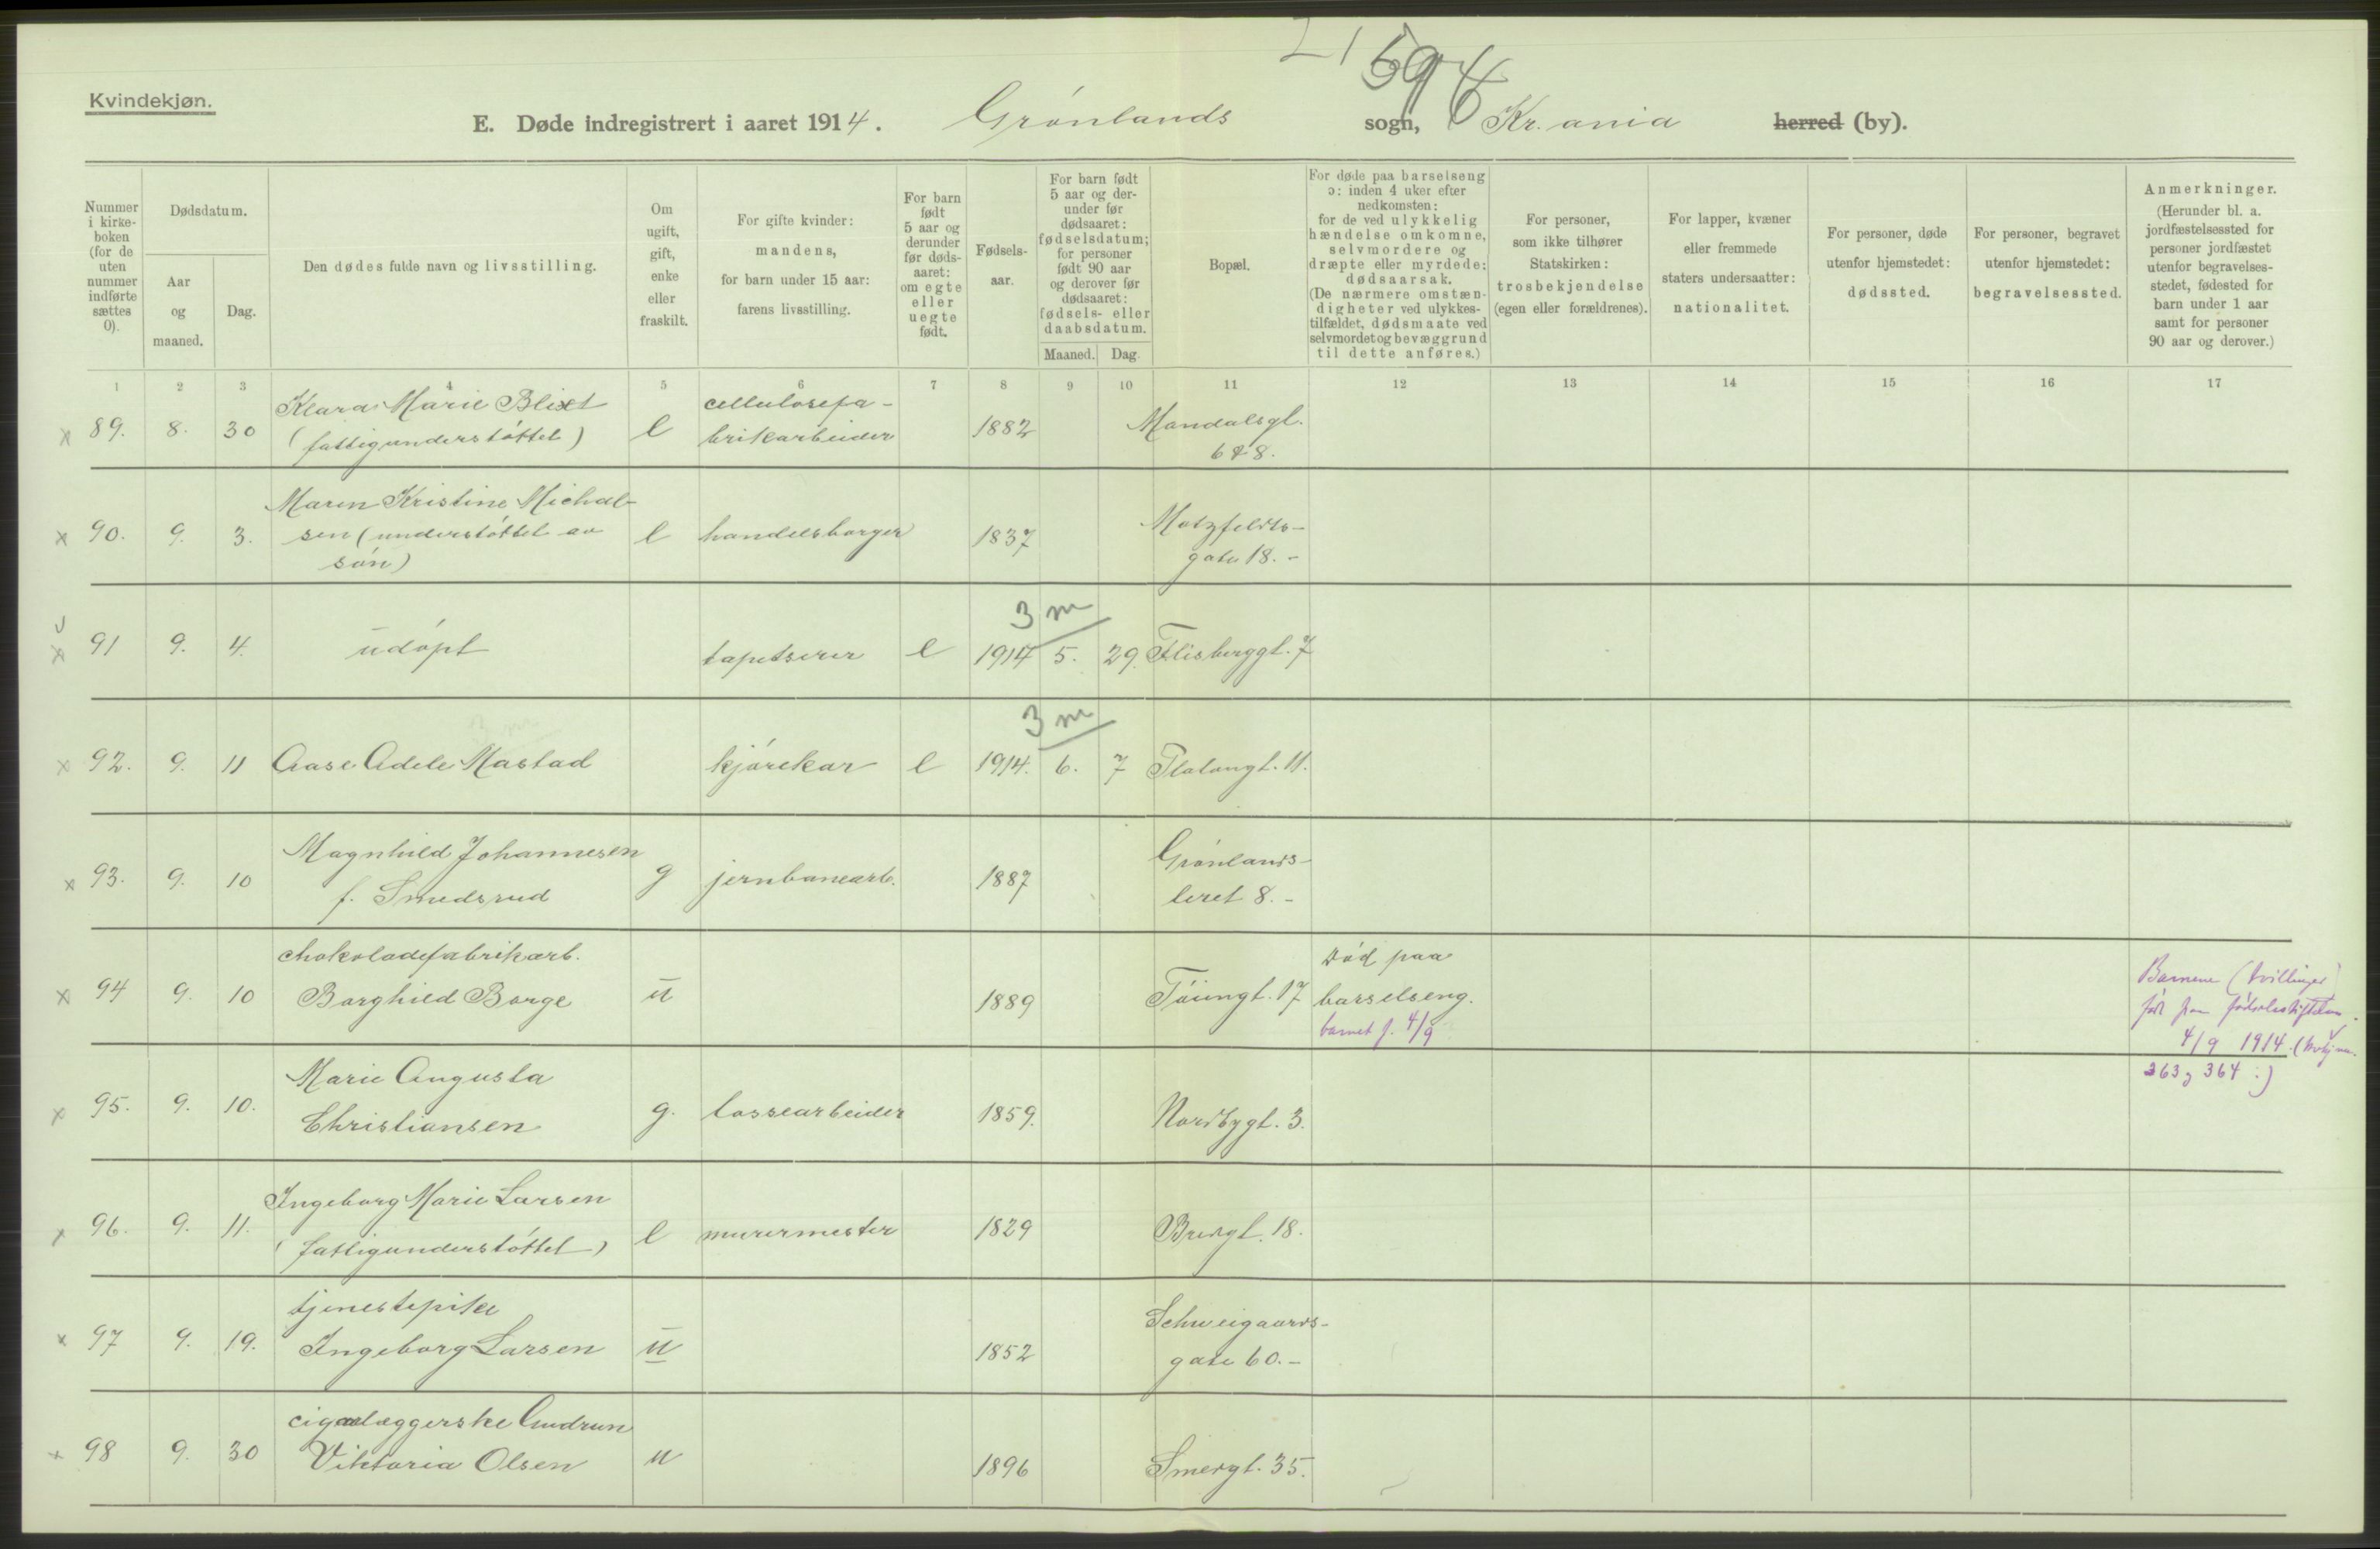 Kvindekjøn.
594
E. Døde indregistrert i aaret 1914. Grønlands sogn, Kr.ania herred (by).
Nummer i kirke-boken (for de uten nummer indførte sættes 0).
Dødsdatum.
Aar og maaned.
Dag.
Den dødes fulde navn og livsstilling.
Om ugift, gift, enke eller fraskilt.
For gifte kvinder: mandens, for barn under 15 aar: farens livsstilling.
For barn født 5 aar og derunder før døds-aaret: om egte eller uegte født.
Fødsels-aar.
For barn født 5 aar og der-under før dødsaaret: fødselsdatum; for personer født 90 aar og derover før dødsaaret: fødsels- eller daabsdatum.
Maaned. Dag.
Bopæl.
For døde paa barselseng ɔ: inden 4 uker efter nedkomsten: for de ved ulykkelig hændelse omkomne, selvmordere og dræpte eller myrdede: dødsaarsak. (De nærmere omstæn-digheter ved ulykkes-tilfældet, dødsmaate ved selvmordet og bevæggrund til dette anføres.)
For personer, som ikke tilhører Statskirken: trosbekjendelse (egen eller forældrenes).
For lapper, kvæner eller fremmede staters undersaatter: nationalitet.
For personer, døde utenfor hjemstedet: dødssted.
For personer, begravet utenfor hjemstedet: begravelsessted.
Anmerkninger. (Herunder bl. a. jordfæstelsessted for personer jordfæstet utenfor begravelses-stedet, fødested for barn under 1 aar samt for personer 90 aar og derover.)
1 2 3 4 5 6 7 8 9 10 11 12 13 14 15 16 17
x 89. 8. 30 Klara Marie Blixt (fattigunderstøttet) e cellulosefa-brikarbeider 1882 Mandalsgt. 6&8.
x 90. 9. 3. Maren Kristine Michael-sen (understøttet av søn) e handelsborger 1837 Motzfeldts-gate 18.-
x 91 9. 4. udøpt tapetserer e 1914 5. 29. 3 m Flisberggt. 7
x 92. 9. 11 Aase Adele Mastad kjørekar e 1914. 6. 7 3 m Platougt. 11.
x 93. 9. 10 Magnhild Johannesen f. Smedsrud g jernbanearb. 1887 Grønlands-leret 8.-
x 94 9. 10 chokoladefabrikarb. Borghild Borge u 1889 Tøiengt. 17 død paa barselseng. barnet f. 4/9 Barnene (tvillinger) født paa fødselsstiftelsen. 4/9 1914. 363 og 364 :)
x 95. 9. 10. Marie Augusta Christiansen g. lossearbeider 1859. Nordbygt. 3.
x 96. 9. 11. Ingeborg Marie Larsen (fattigunderstøttet) e murermester 1829 Bredgt. 18.
x 97 9. 19. tjenestepike Ingeborg Larsen u 1852 Schweigaards-gate 60.-
x 98 9. 30 cigarlæggerske Gudrun Viktoria Olsen u 1896 Smedgt. 35.